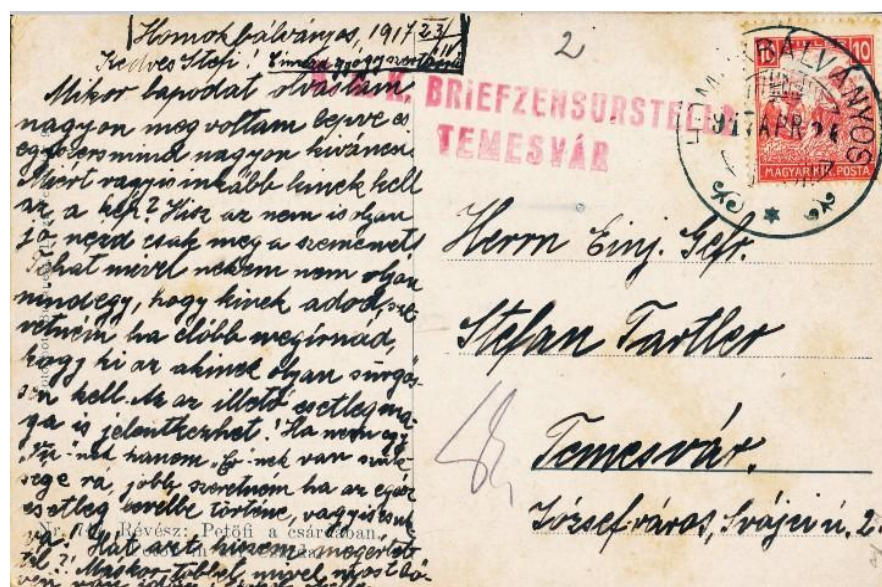 Homokbálványos, 1917 23/IV.
Kedves Stefi!
Mikor lapodat olvastam
nagyon meg voltam lepve és
egyszersmind nagyon kiváncsi.
Miért vagyis inkább kinek kell
az a kép? Hisz az nem is olyan
jó nézd csak meg a szemeimet!
Tehát mivel nekem nem olyan
mindegy, hogy kinek adod, sze-
retném ha előbb megirnád,
hogy ki az akinek olyan sürgő-
sen kell. Az az illető esetleg ma-
ga is jelentkezhet! Ha nem egy
"Fii"-nek hanem "Er"-nek van szük-
sége rá, jobb szeretném ha az egész
esetleg levélbe történne, vagyis
Hát azt hiszem megértet-
tél?! Máskor többet, mivel most
Nr. Révész: Petöfi a csárdában.
2
K. BRIEFZENSURSTELLE
TEMESVÁR
HOMOKBÁLVÁNYOS
917 APR 24
10 FILLÉR 10
MAGYAR KIR. POSTA
Herrn Einj. Gefr.
Stefan Tartler
Temesvár.
Józsefváros, Svájci ú. 2.